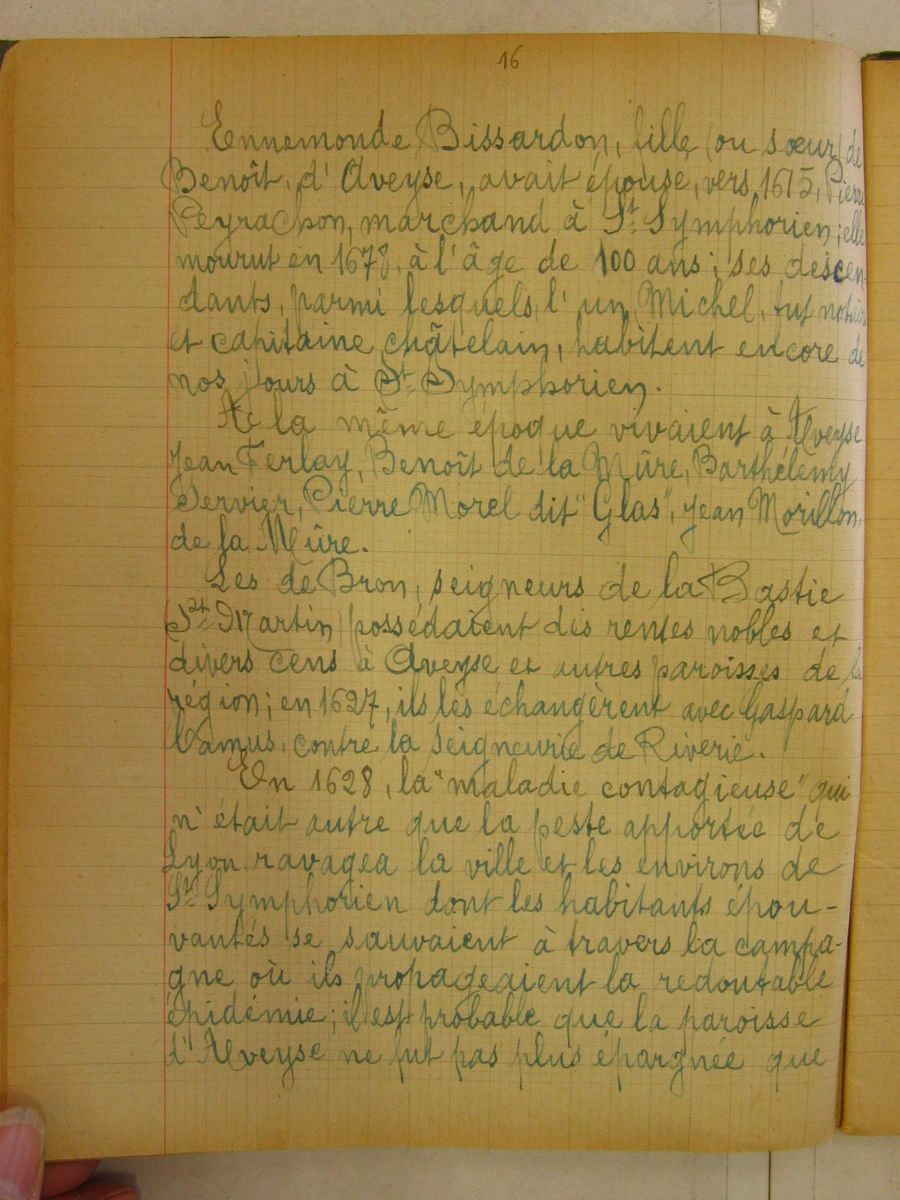 16
Ennemonde Bissardon, fille (ou sœur) de
Benoît, d'Aveyse, avait épousé, vers 1615, Pierre
Peyrachon, marchand à St Symphorien; elle
mourut en 1678, à l'âge de 100 ans; ses descen-
dants, parmi lesquels l'un, Michel, fut notaire
et capitaine châtelain, habitent encore de
nos jours à St Symphorien.
A la même époque vivaient à Aveyse
Jean Ferlay, Benoît de la Mûre, Barthélemy
Servier, Pierre Morel dit "Glas", Jean Morillon,
de la Mûre.
Les de Bron, seigneurs de la Bastie
(St Martin) possédaient des rentes nobles et
divers cens à Aveyse et autres paroisses de la
région; en 1627, ils les échangèrent avec Gaspard
Camus, contre la seigneurie de Riverie.
En 1628, la "maladie contagieuse" qui
n'était autre que la peste apportée de
Lyon, ravagea la ville et les environs de
St Symphorien dont les habitants épou-
vantés se sauvaient à travers la campa-
gne où ils propageaient la redoutable
épidémie; il est probable que la paroisse
d'Aveyse ne fut pas plus épargnée que